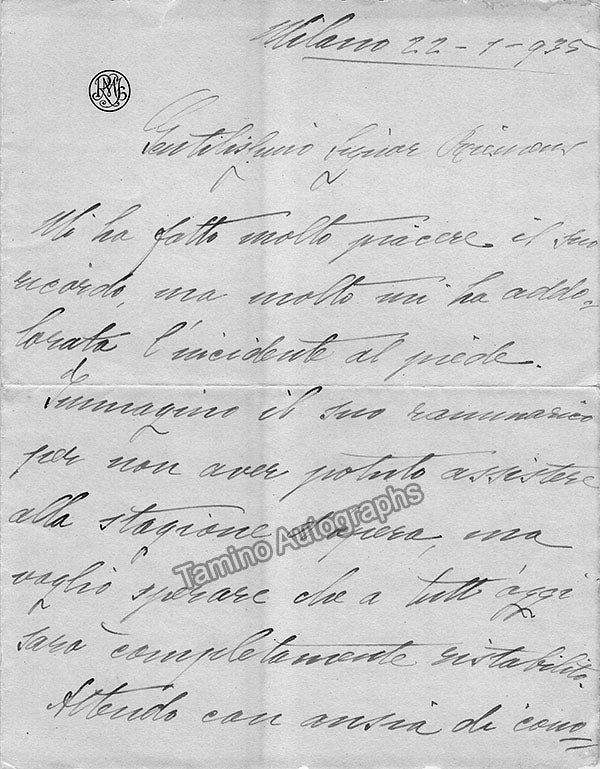 Milano 22-1-935
Gentilissimo Signor
Mi ha fatto molto piacere il suo
ricordo, ma molto mi ha addo=
lorata l'incidente al piede.
Immagino il suo rammarico
per non aver potuto assistere
alla stagione d'opera, ma
voglio sperare che a tutt'oggi
sarà completamente ristabilito.
Attendo con ansia di cono=
Tamino Autographs